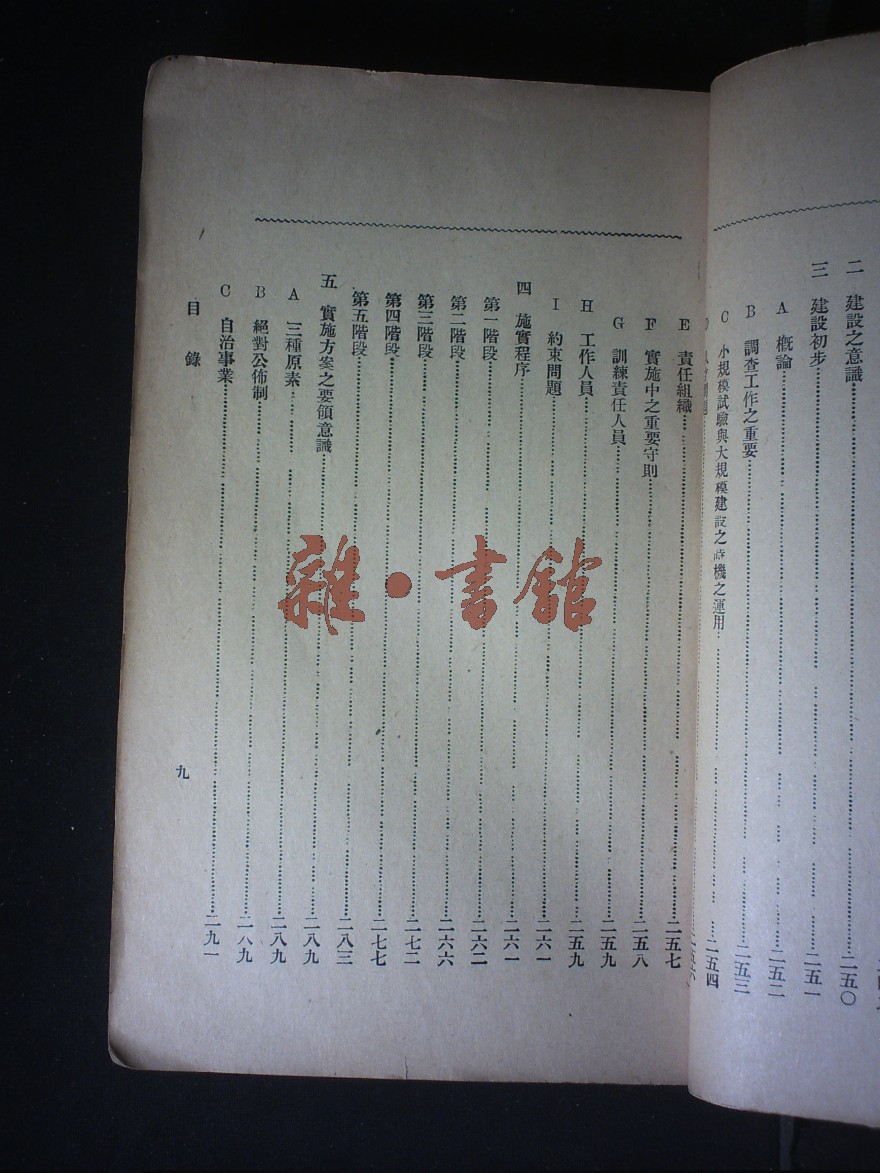 二 建設之意識……二五〇
三 建設初步……二五一
A 概論……二五二
B 調查工作之重要……二五三
C 小規模試驗與大規模建設之時機之運用……二五四
E 責任組織……二五七
F 實施中之重要守則……二五八
G 訓練責任人員……二五九
H 工作人員……二五九
I 約束問題……二六一
四 施實程序……二六一
第一階段……二六二
第二階段……二六六
第三階段……二七二
第四階段……二七七
第五階段……二八三
五 實施方案之要領意識……二八九
A 三種原素……二八九
B 絕對公佈制……二八九
C 自治事業……二九一
目錄
九
雜·書館